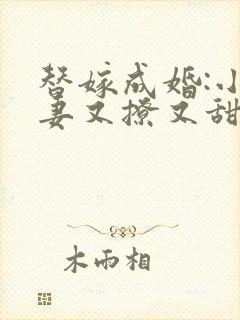 替嫁成婚:小
妻又撩又甜
木雨相